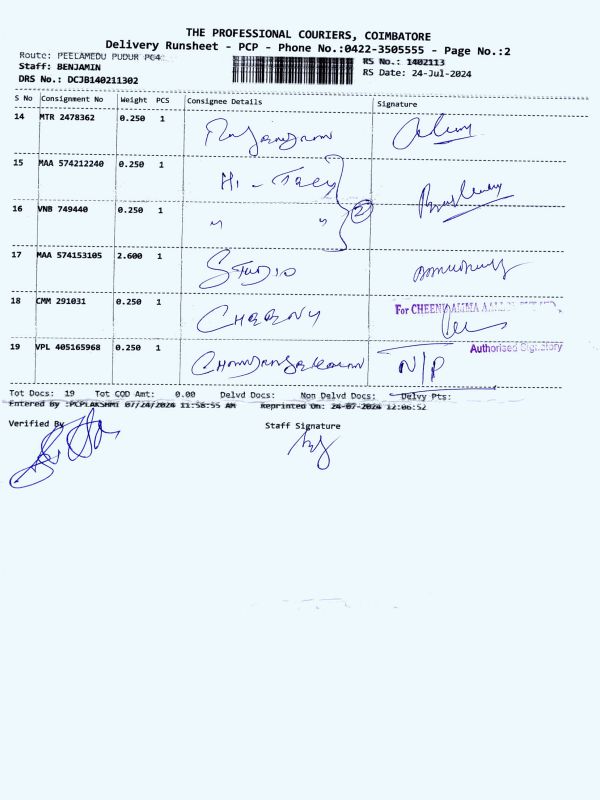 THE PROFESSIONAL COURIERS, COIMBATORE
Delivery Runsheet - PCP - Phone No.:0422-3505555 - Page No.:2
Route: PEELAMEDU PUDUR PC4
RS No.: 1402113
Staff: BENJAMIN
RS Date: 24-Jul-2024
DRS No.: DCJB140211302
S No Consignment No Weight PCS Consignee Details Signature
14 MTR 2478362 0.250 1
15 MAA 574212240 0.250 1 Hi - Tacy
16 VNB 749440 0.250 1 " " 2
17 MAA 574153105 2.600 1 STUDIO
18 CMM 291031 0.250 1 CHEENY For CHEENU AMMA
Authorised Signatory
19 VPL 405165968 0.250 1 N/P
Tot Docs: 19 Tot COD Amt: 0.00 Delvd Docs: Non Delvd Docs: Delvy Pts:
Entered By :PCPLAKSHMI 07/24/2024 11:58:55 AM Reprinted On: 24-07-2024 12:06:52
Verified By
Staff Signature